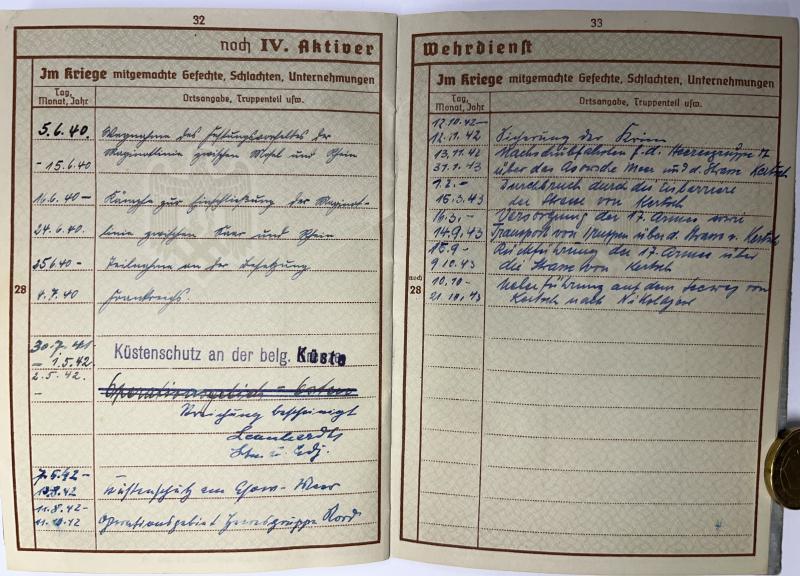 32
noch IV. Aktiver
Im Kriege mitgemachte Gefechte, Schlachten, Unternehmungen
Tag, Monat, Jahr
Ortsangabe, Truppenteil usw.
5.6.40. Wegnahme des Festungsvorfeldes der
- 15.6.40 Maginotlinie zwischen Mosel und Rhein
16.6.40 - Kämpfe zur Einschließung der Maginot-
24.6.40. linie zwischen Saar und Rhein
25.6.40 - Teilnahme an der Besetzung
28
4.7.40 Frankreichs.
30.7.41
- 1.5.42. Küstenschutz an der belg. Küste
2.5.42.
- Operationsgebiet = Osten
Streichung bescheinigt
Leonhardt
Obw. u. Adj.
7.5.42 -
Küstenschutz am Asow-Meer
11.8.42 -
Operationsgebiet Heeresgruppe Nord
33
Wehrdienst
Im Kriege mitgemachte Gefechte, Schlachten, Unternehmungen
Tag, Monat, Jahr
Ortsangabe, Truppenteil usw.
12.10.42 -
12.11.42 Sicherung der Krim
13.11.42 Nachschubfahrten f. d. Heeresgruppe
31.1.43 über das Asowsche Meer und d. Strasse Kertsch
1.2. - Durchbruch durch die Eisbarriere
15.3.43 der Strasse von Kertsch
16.3. - Versorgung der 17. Armee sowie
14.9.43 Transport von Truppen über d. Strasse v. Kertsch
15.9 - Rückführung der 17. Armee über
9.10.43 die Strasse von Kertsch
noch 28
10.10 - Ueberführung auf dem Seeweg von
21.10.43 Kertsch nach Nikolajew